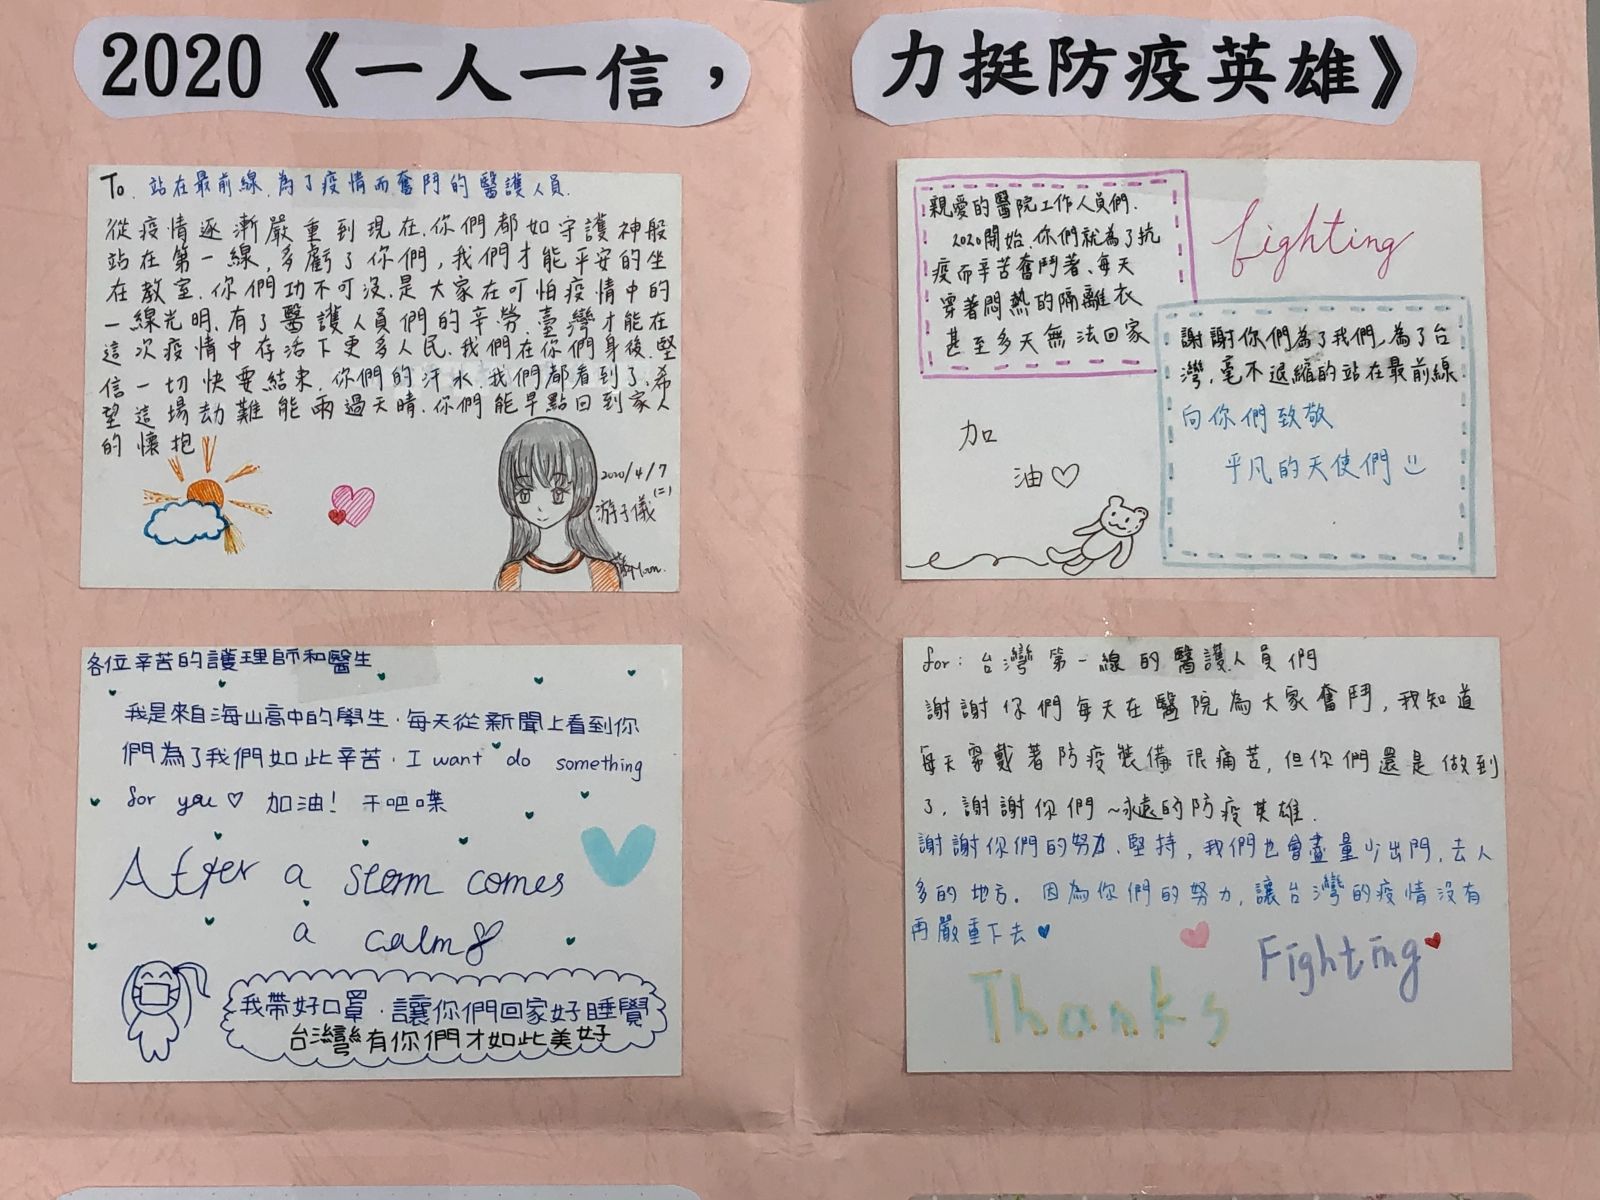 2020《一人一信，力挺防疫英雄》
To. 站在最前線.為了疫情而奮鬥的醫護人員.
從疫情逐漸嚴重到現在.你們都如守護神般
站在第一線,多虧了你們,我們才能平安的坐
在教室.你們功不可沒.是大家在可怕疫情中的
一線光明.有了醫護人員們的辛勞.臺灣才能在
這次疫情中存活下更多人民.我們在你們身後.堅
信一切快要結束.你們的汗水.我們都看到了.希
望這場劫難能雨過天晴.你們能早點回到家人
的懷抱
2020/4/7
(二)
游子儀
親愛的醫院工作人員們.
2020開始.你們就為了抗
疫而辛苦奮鬥著、每天
穿著悶熱的隔離衣
甚至多天無法回家
fighting
謝謝你們為了我們,為了台
灣,毫不退縮的站在最前線.
向你們致敬
平凡的天使們
加
油♡
各位辛苦的護理師和醫生
我是來自海山高中的學生.每天從新聞上看到你
們為了我們如此辛苦. I want do something
for you ♡ 加油! 干吧喋
After a storm comes
a calm
我帶好口罩.讓你們回家好睡覺
台灣有你們才如此美好
for: 台灣第一線的醫護人員們
謝謝你們每天在醫院為大家奮鬥,我知道
每天穿戴著防疫裝備很痛苦,但你們還是做到
了.謝謝你們~永遠的防疫英雄.
謝謝你們的努力.堅持,我們也會盡量少出門.去人
多的地方.因為你們的努力,讓台灣的疫情沒有
再嚴重下去♥
Fighting
Thanks